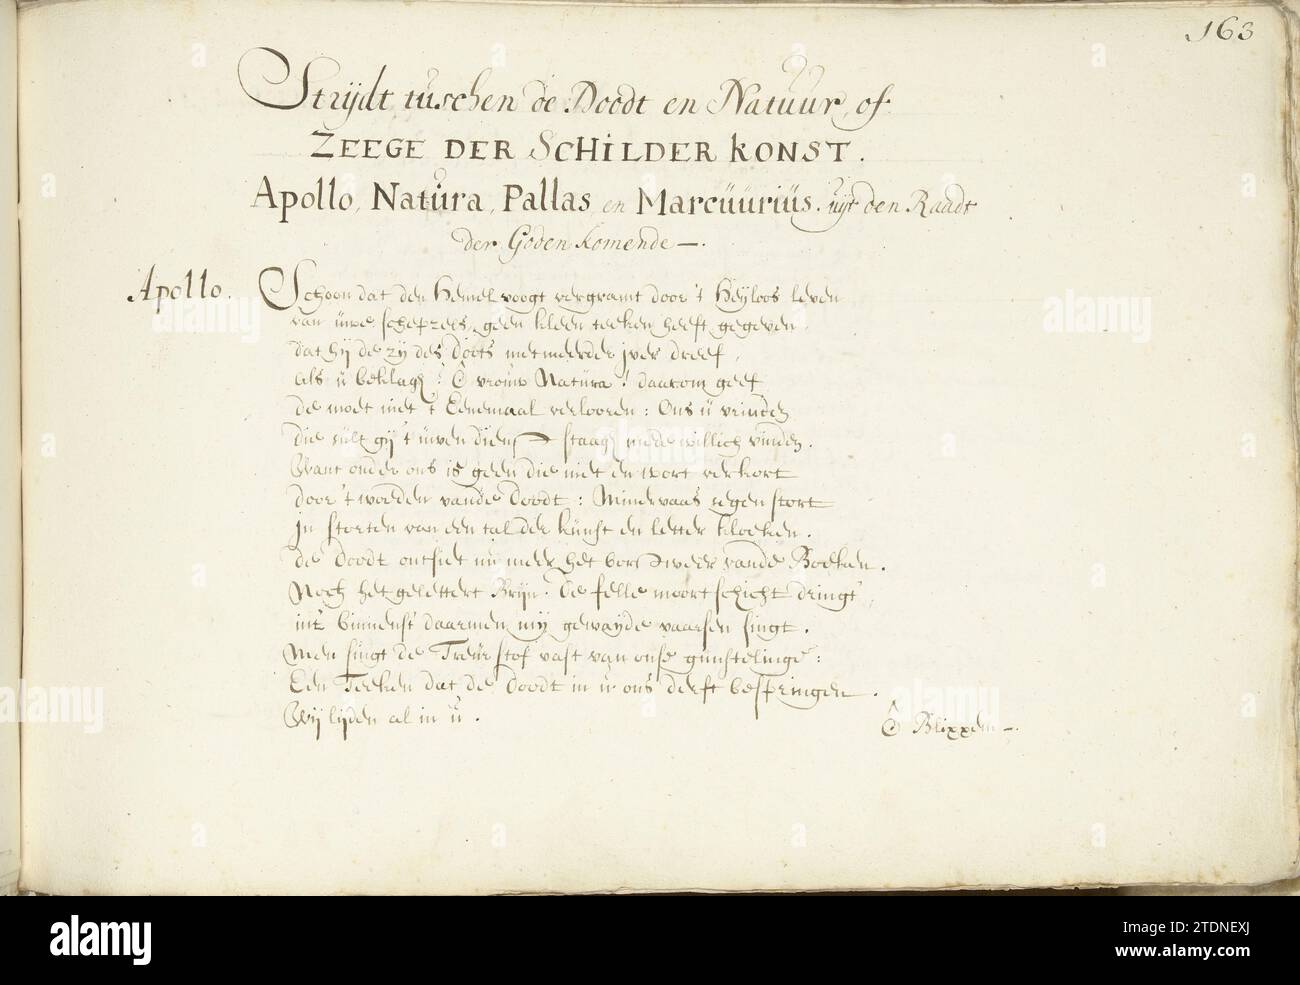 163
Strijdt tusschen de Doodt en Natuur, of
ZEEGE DER SCHILDER KONST.
Apollo, Natura, Pallas en Marcuurius. uijt den Raadt
der Goden komende —.
Apollo. Schoon dat den Hemel voogt vergramt door 't Heyloos leven
van uwe schepzels, geen kleen teeken heeft gegeven
dat hij de zy des doots met meerder jver dreef,
als u beklagh! Ô vrouw Natura! daarom geef
de moet niet 't Eenemaal verlooren: Ons u vrinden
die sult gij 't uwen dienst staagh mede willich vinden.
Want onder ons is geen die niet en wort verkort
door 't woeden vande doodt: Minervaas segen stort
In storten van een tal der kunst en letter kloeken.
de doodt ontsiet nu meer het vande Boeken.
Noch het gelettert Brijn. De felle moort schicht dringt,
int binnenst daarmen mij gewayde vaarsen singt.
Men singt de Treur stof vast van onse gunstelinge:
Een Teeken dat de doodt in u ons derft bespringen.
Wij lijden al in u.
Ô Blixxem —.
alamy
Image ID: 2TDNEXJ
www.alamy.com